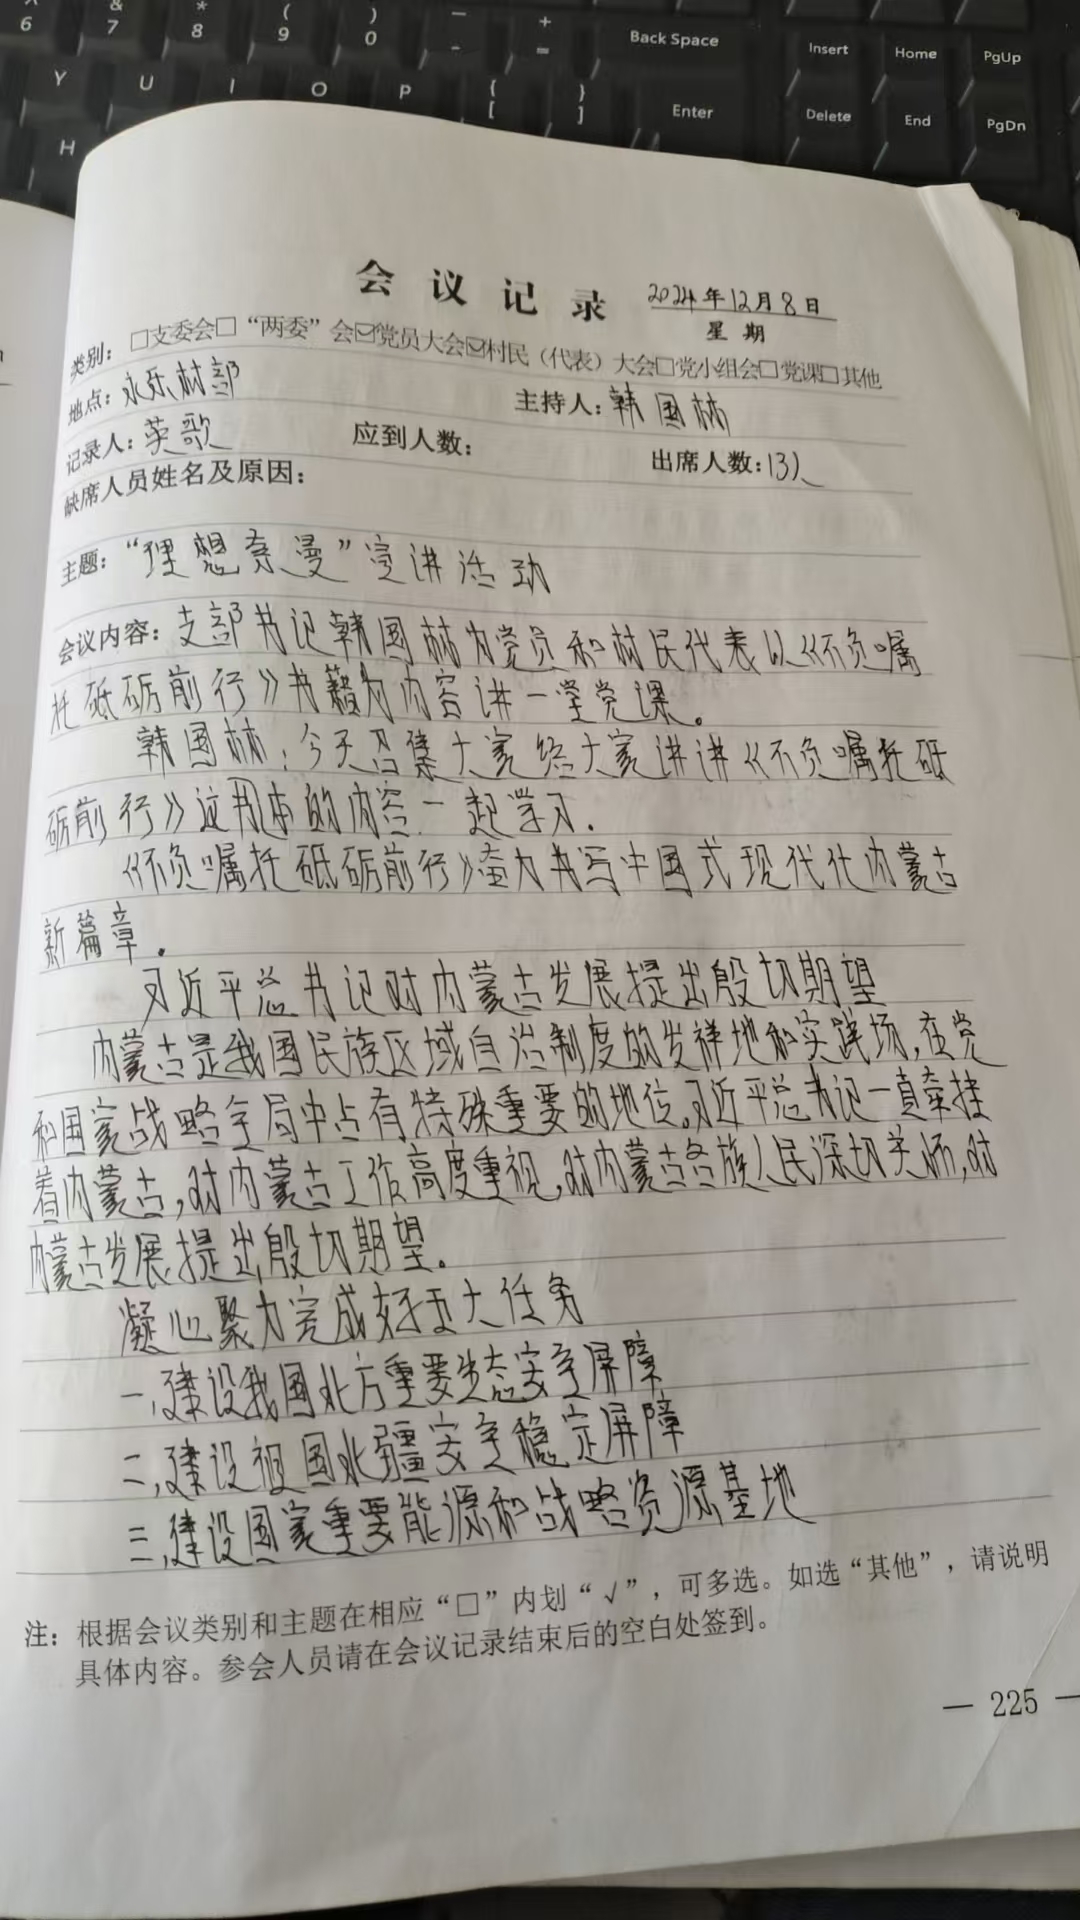 ^ 6
& 7
* 8
( 9
) 0
— -
+ =
Back Space
Insert
Home
PgUp
Y
U
I
O
P
{ [
} ]
Enter
Delete
End
PgDn
H
会议记录
2024年12月8日
星期
类别：□支委会□“两委”会☑党员大会☑村民（代表）大会□党小组会□党课□其他
地点：永乐村部 主持人：韩国林
记录人：英歌 应到人数： 出席人数：13人
缺席人员姓名及原因：
主题：“理想奈曼”宣讲活动
会议内容：支部书记韩国林为党员和村民代表以《不负嘱
托砥砺前行》书籍为内容讲一堂党课。
韩国林：今天召集大家给大家讲讲《不负嘱托砥
砺前行》这书本的内容一起学习.
《不负嘱托砥砺前行》奋力书写中国式现代化内蒙古
新篇章.
习近平总书记对内蒙古发展提出殷切期望
内蒙古是我国民族区域自治制度的发祥地和实践场,在党
和国家战略全局中占有特殊重要的地位。习近平总书记一直牵挂
着内蒙古,对内蒙古工作高度重视,对内蒙古各族人民深切关怀,对
内蒙古发展提出殷切期望。
凝心聚力完成好五大任务
一,建设我国北方重要生态安全屏障
二,建设祖国北疆安全稳定屏障
三,建设国家重要能源和战略资源基地
注：根据会议类别和主题在相应“□”内划“√”，可多选。如选“其他”，请说明
具体内容。参会人员请在会议记录结束后的空白处签到。
— 225 —